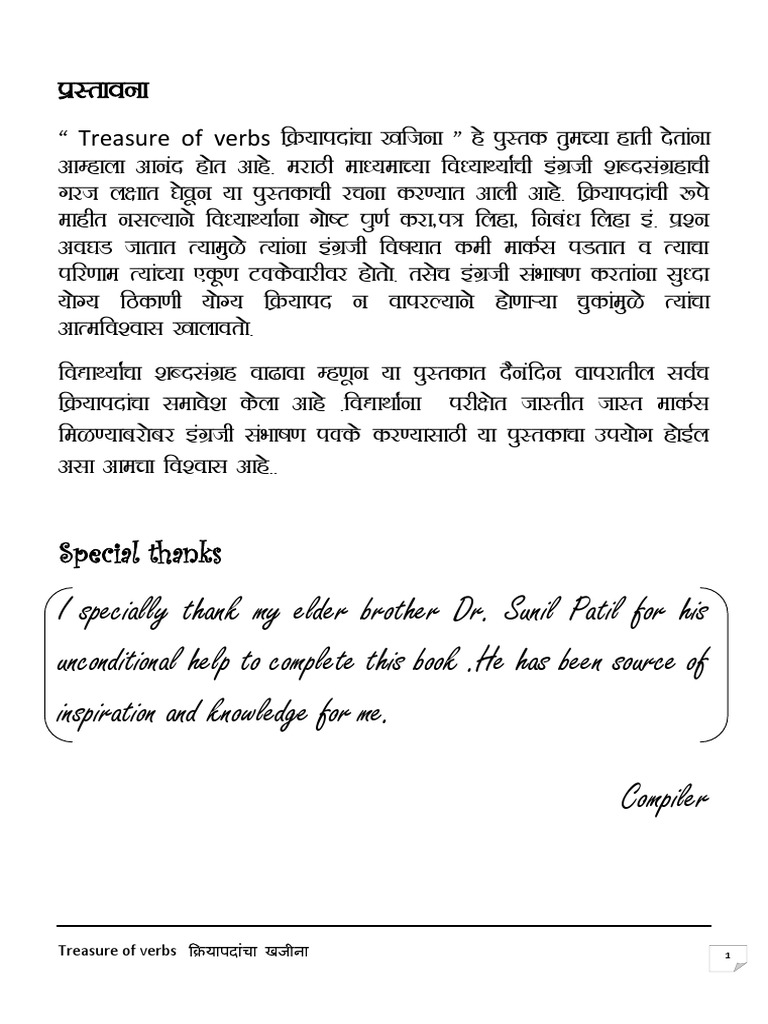 प्रस्तावना
“ Treasure of verbs क्रियापदांचा खजिना ” हे पुस्तक तुमच्या हाती देतांना
आम्हाला आनंद होत आहे. मराठी माध्यमाच्या विध्यार्थ्यांची इंग्रजी शब्दसंग्रहाची
गरज लक्षात घेवून या पुस्तकाची रचना करण्यात आली आहे. क्रियापदांची रूपे
माहीत नसल्याने विध्यार्थ्यांना गोष्ट पुर्ण करा,पत्र लिहा, निबंध लिहा इं. प्रश्न
अवघड जातात त्यामुळे त्यांना इंग्रजी विषयात कमी मार्कस पडतात व त्याचा
परिणाम त्यांच्या एकूण टक्केवारीवर होतो. तसेच इंग्रजी संभाषण करतांना सुध्दा
योग्य ठिकाणी योग्य क्रियापद न वापरल्याने होणाऱ्या चुकांमुळे त्यांचा
आत्मविश्वास खालावतो.
विद्यार्थ्यांचा शब्दसंग्रह वाढावा म्हणून या पुस्तकात दैनंदिन वापरातील सर्वच
क्रियापदांचा समावेश केला आहे .विद्यार्थांना परीक्षेत जास्तीत जास्त मार्कस
मिळण्याबरोबर इंग्रजी संभाषण पक्के करण्यासाठी या पुस्तकाचा उपयोग होईल
असा आमचा विश्वास आहे..
Special thanks
I specially thank my elder brother Dr. Sunil Patil for his
unconditional help to complete this book .He has been source of
inspiration and knowledge for me.
Compiler
Treasure of verbs क्रियापदांचा खजीना
1